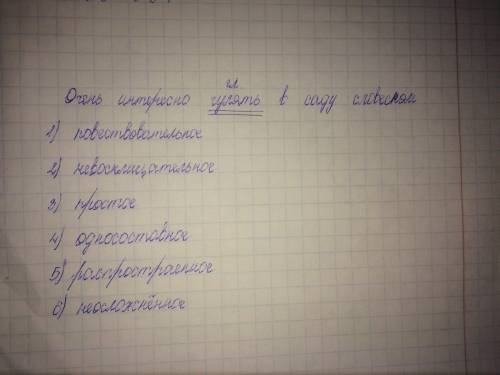 гл.
Очень интересно гулять в саду словесном
1) повествовательное
2) невосклицательное
3) простое
4) односоставное
5) распространенное
6) неосложнённое